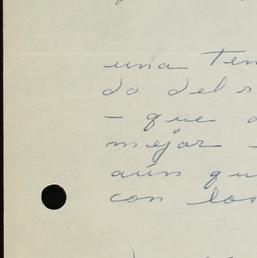 una ten
do del r
- que a
mejor -
aún qu
con los